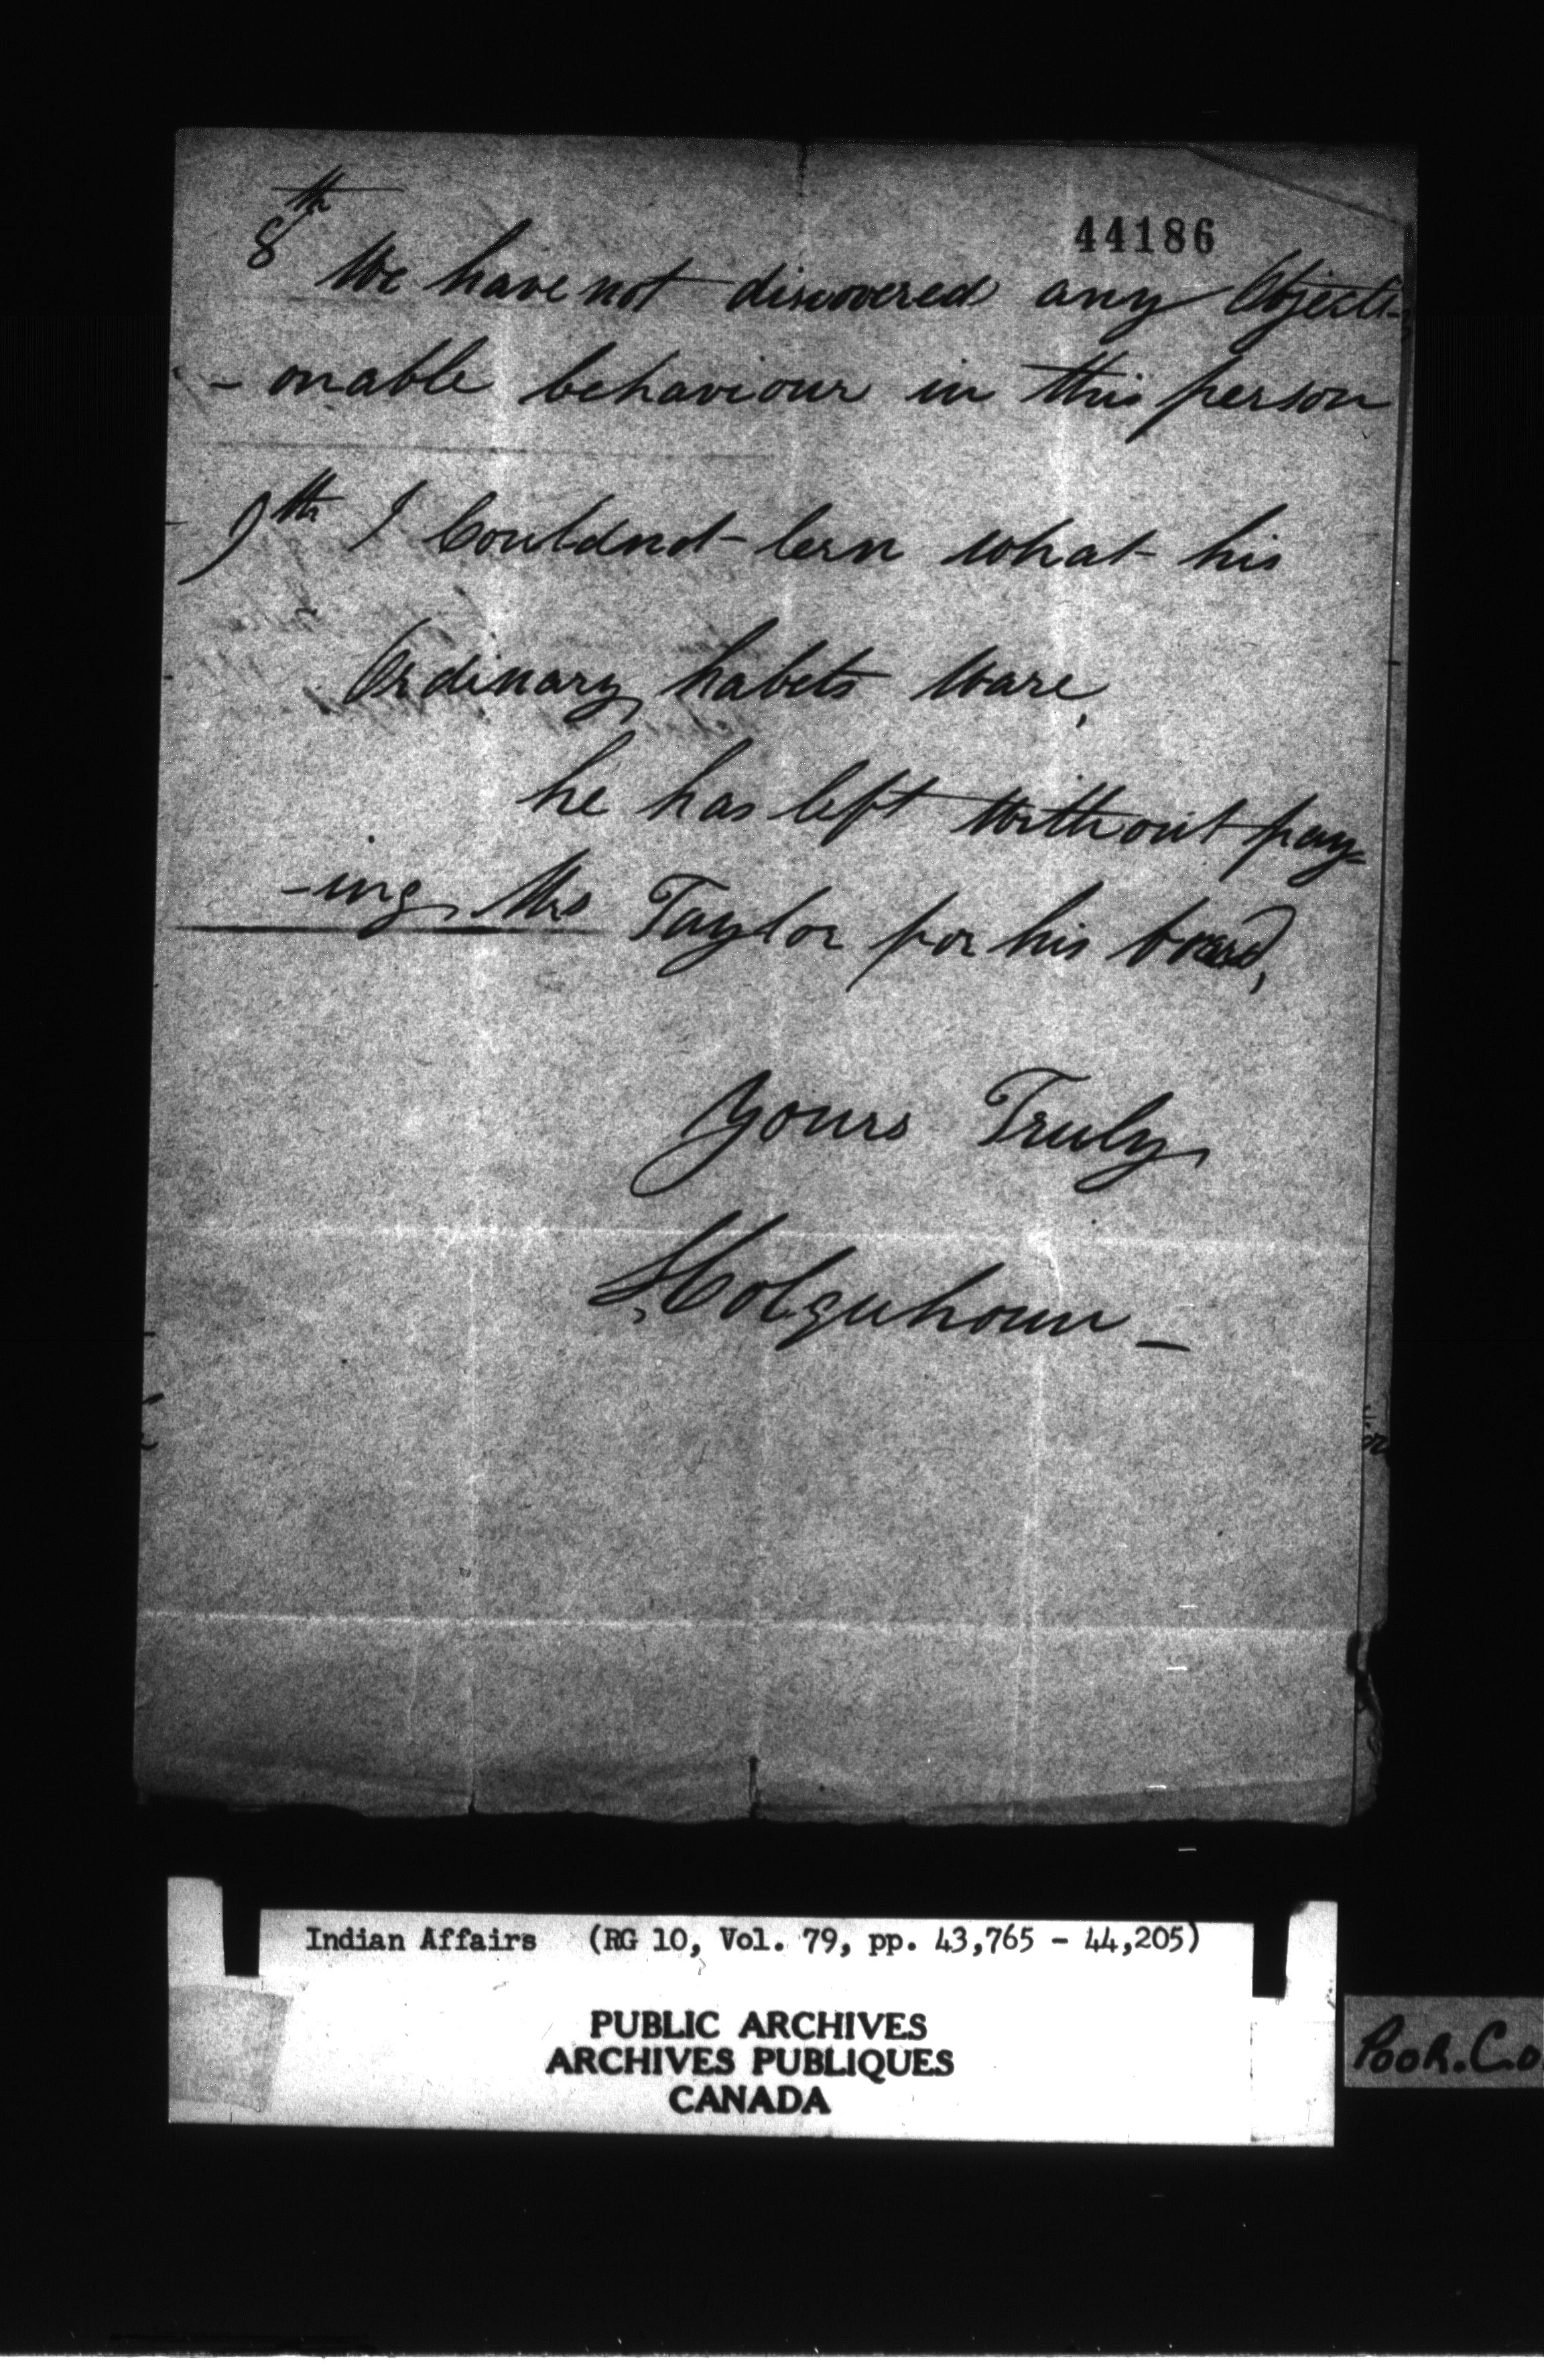 44186
8th We have not discovered any Objecti-
- onable behaviour in this person
9th I Couldnd lern what his
Ordinary habets Ware,
he has left Without pay-
-ing Mrs Taylor for his board,
Yours Truly
J, Colquhoun -
Indian Affairs (RG 10, Vol. 79, pp. 43,765 - 44,205)
PUBLIC ARCHIVES
ARCHIVES PUBLIQUES
CANADA
Pooh.Co